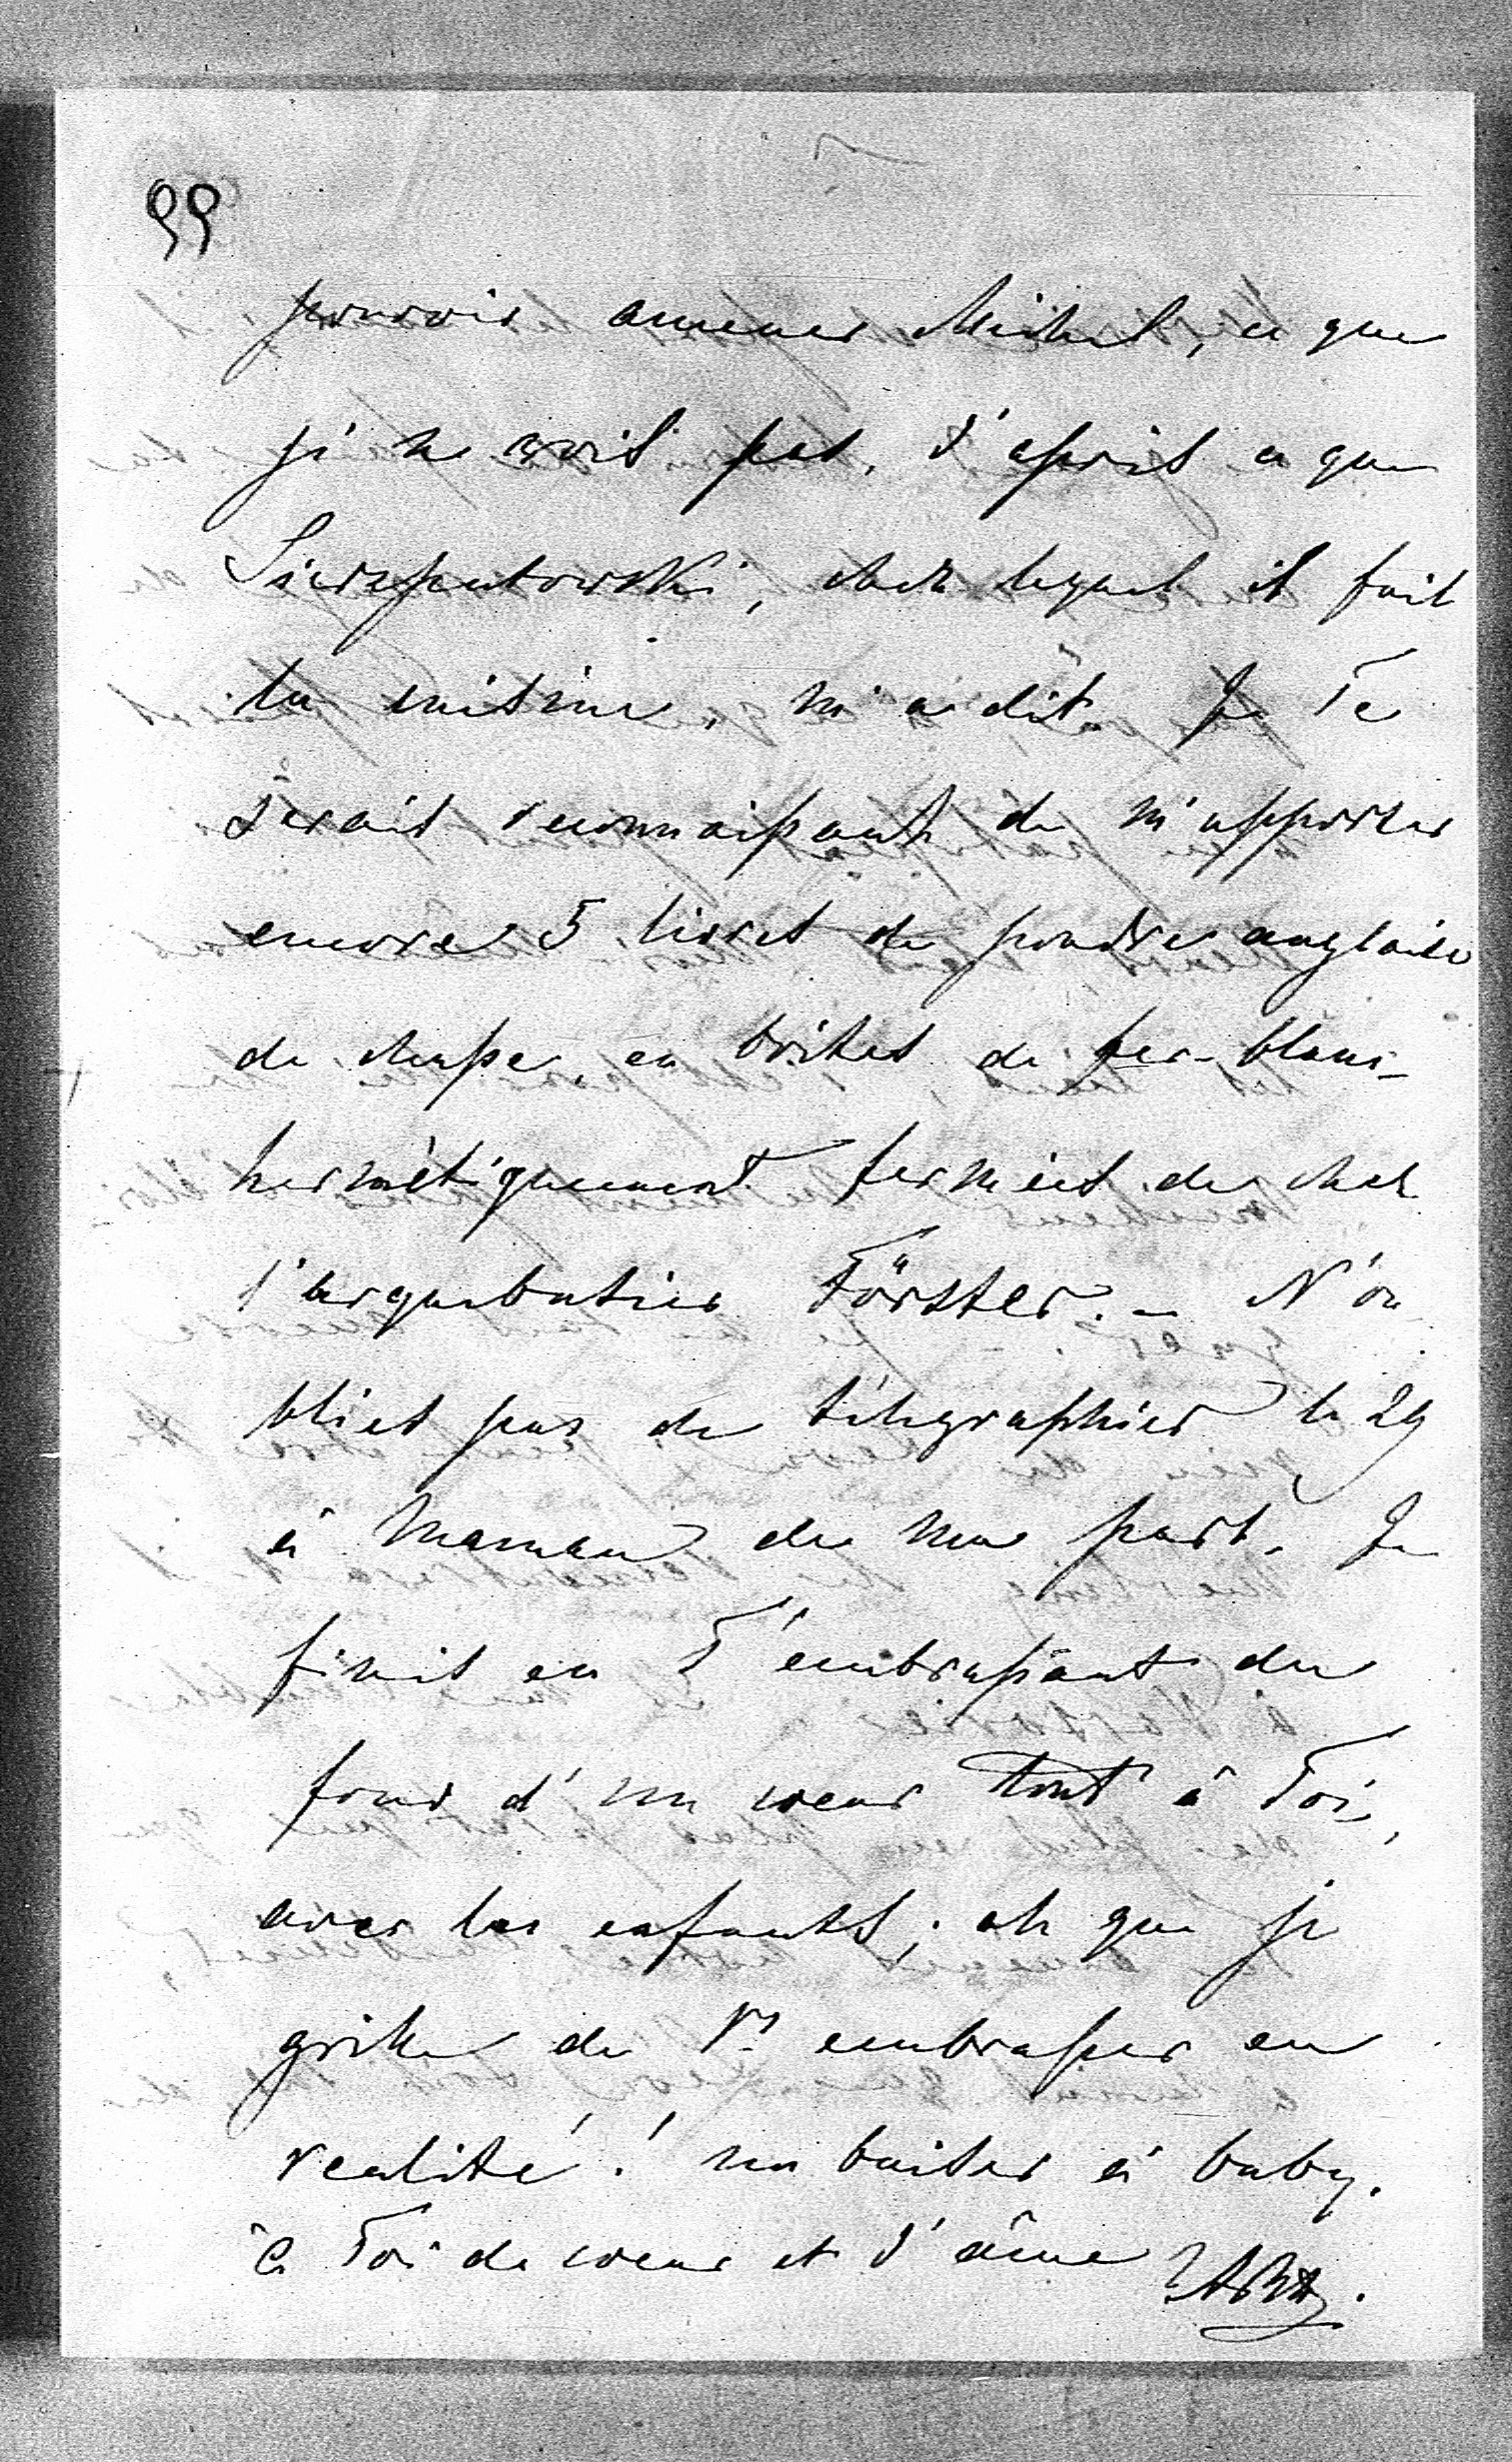 99
pouvoir amener Michel, ce que
je ne crois pas, d'après ce que
Sierzputowski, chez lequel il fait
la cuisine, m'a dit. Je Te
serais reconnaissant de m'apporter
encore 5 livres de poudre anglaise
de chasse, en boites de fer-blanc
hermétiquement fermées de chez
l'arquebusier Förster. – N'ou
blies pas de télégraphier le 29
à Maman de ma part. Je
finis en T'embrassant du
fond d'un coeur tout à Toi,
avec les enfants; oh que je
grille de Vs embrasser en
realité! un baiser à baby.
à Toi de coeur et d'âme